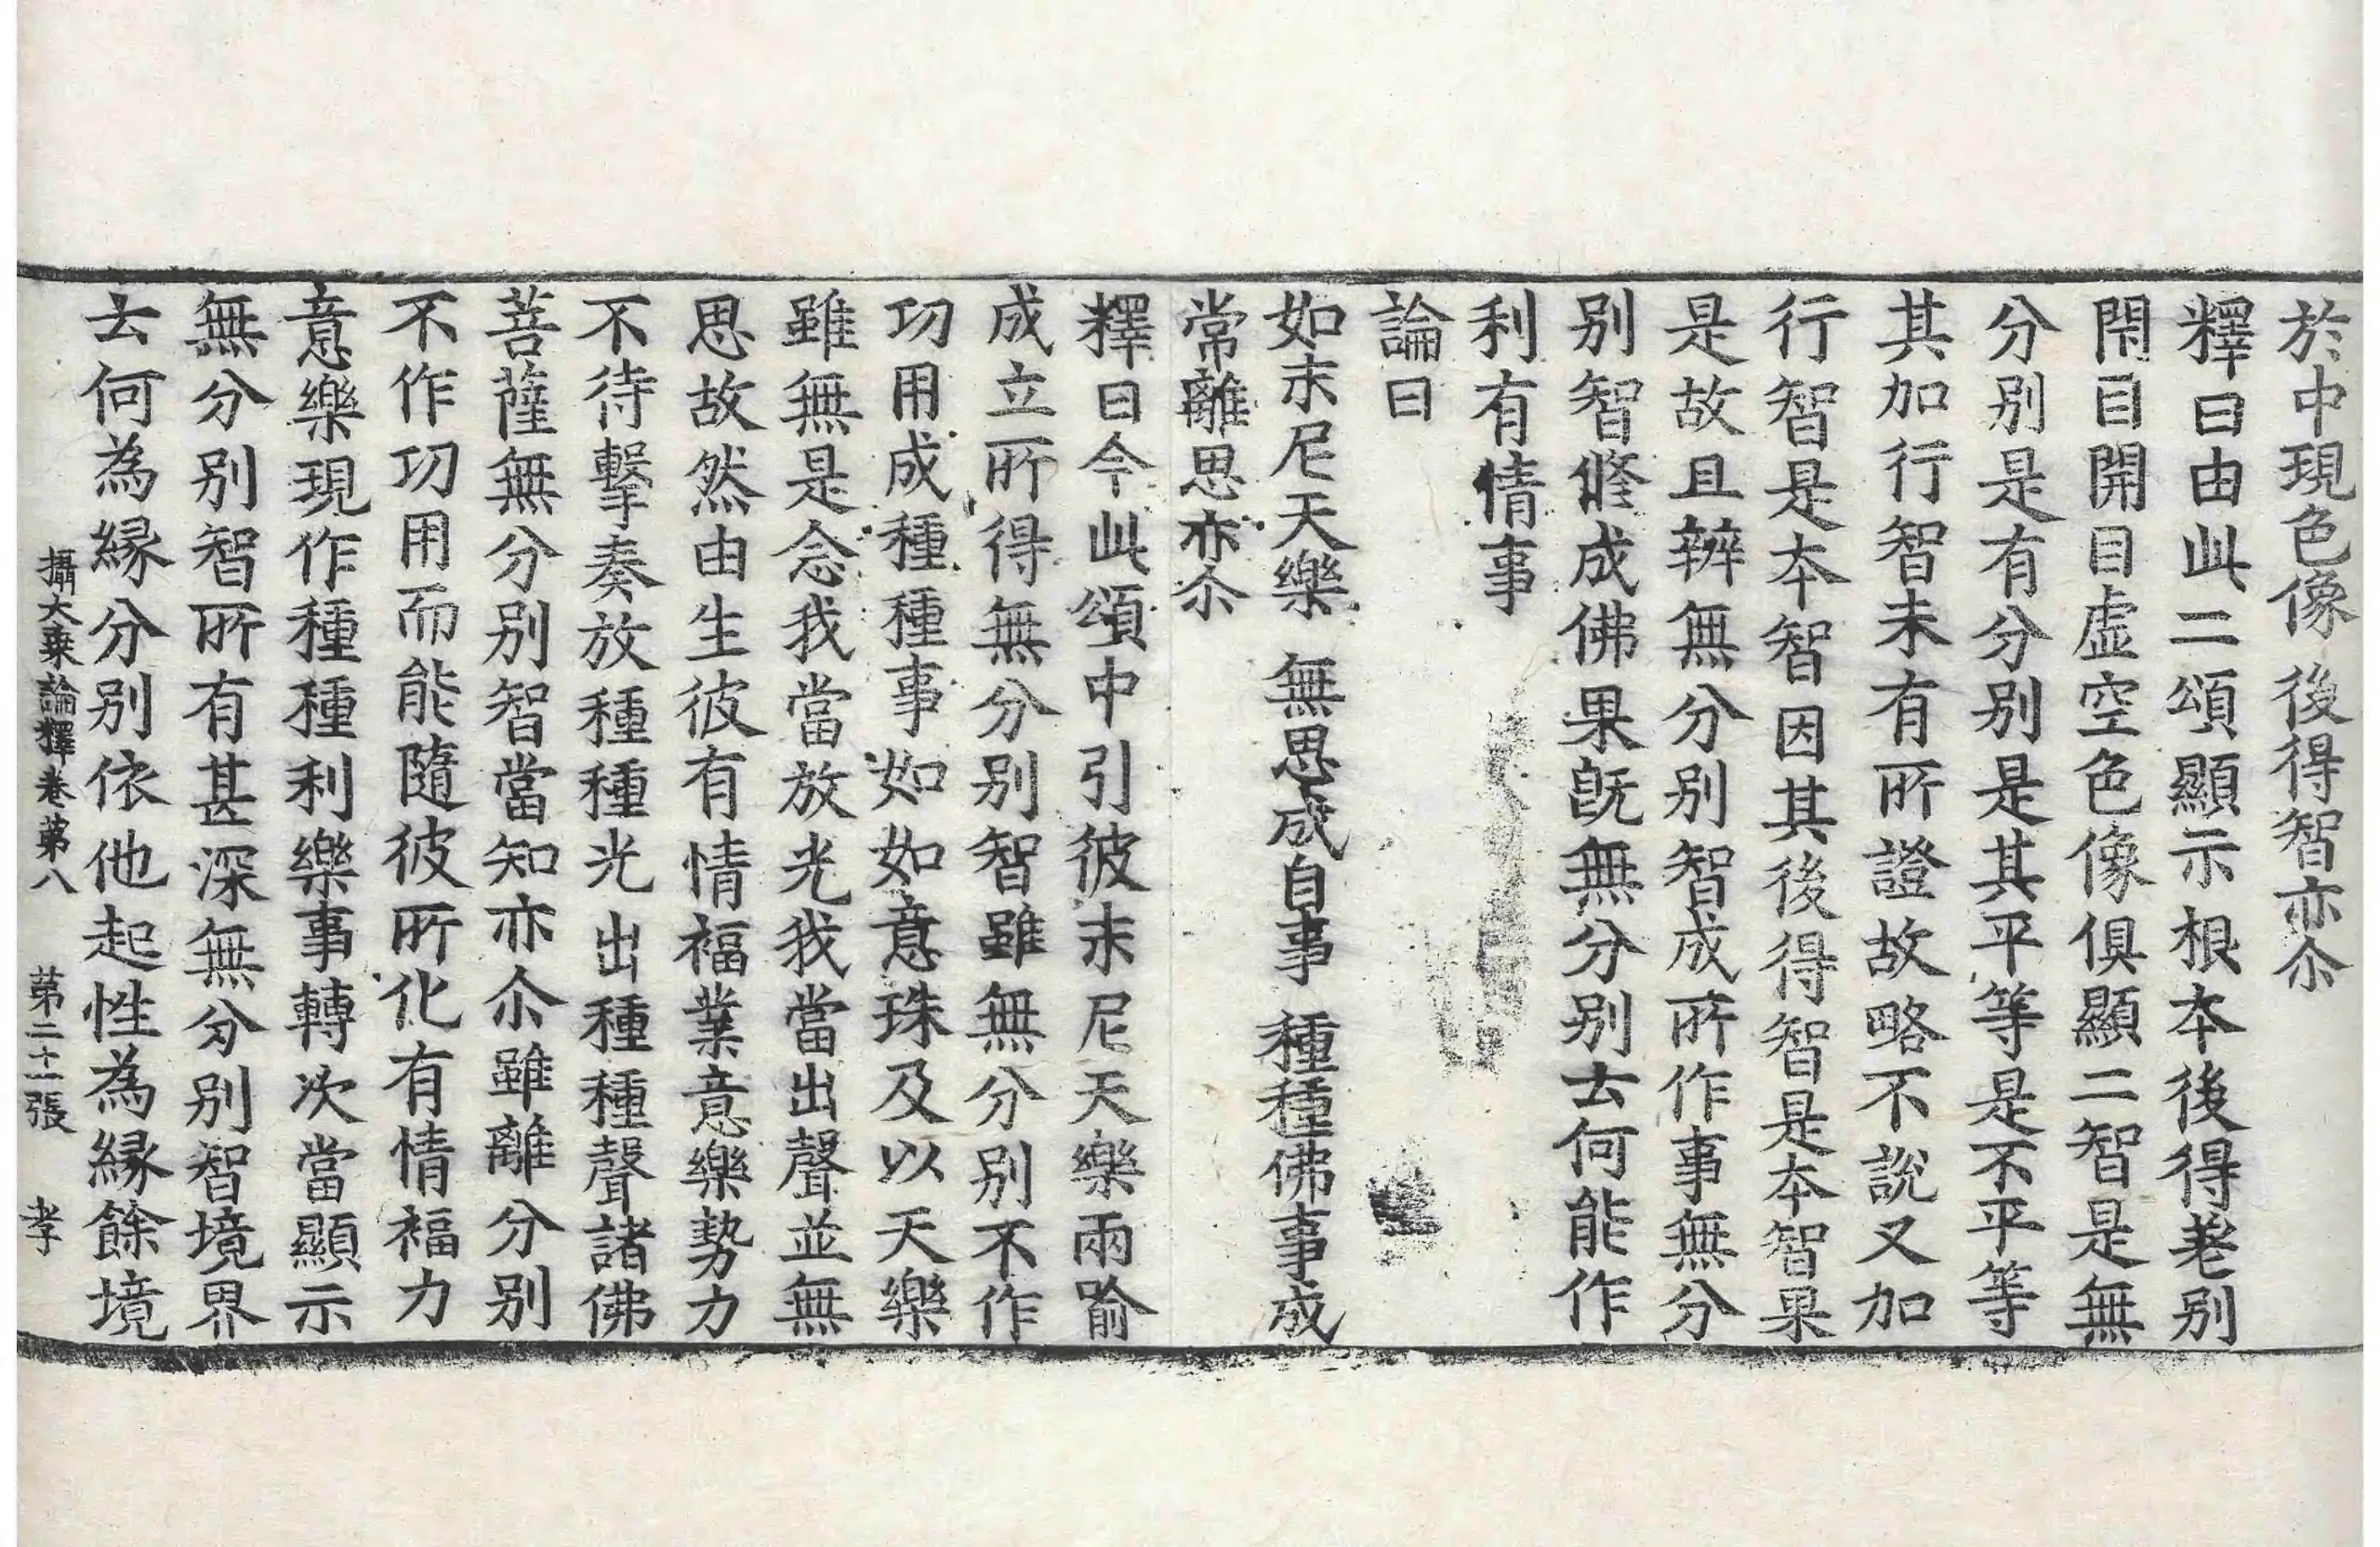 於中現色像 後得智亦尒
釋曰由此二頌顯示根本後得差别
閇目開目虛空色像俱顯二智是無
分别是有分别是其平等是不平等
其加行智未有所證故略不說又加
行智是本智因其後得智是本智果
是故且辨無分别智成所作事無分
别智修成佛果旣無分别云何能作
利有情事
論曰
如末尼天樂 無思成自事 種種佛事成
常離思亦尒
釋曰今此頌中引彼末尼天樂兩喻
成立所得無分别智雖無分别不作
功用成種種事如如意珠及以天樂
雖無是念我當放光我當出聲並無
思故然由生彼有情福業意樂勢力
不待擊奏放種種光出種種聲諸佛
菩薩無分别智當知亦尒雖離分别
不作功用而能隨彼所化有情福力
意樂現作種種利樂事轉次當顯示
無分别智所有甚深無分别智境界
云何為緣分别依他起性為緣餘境
攝大乗論釋卷第八 第二十一張 孝